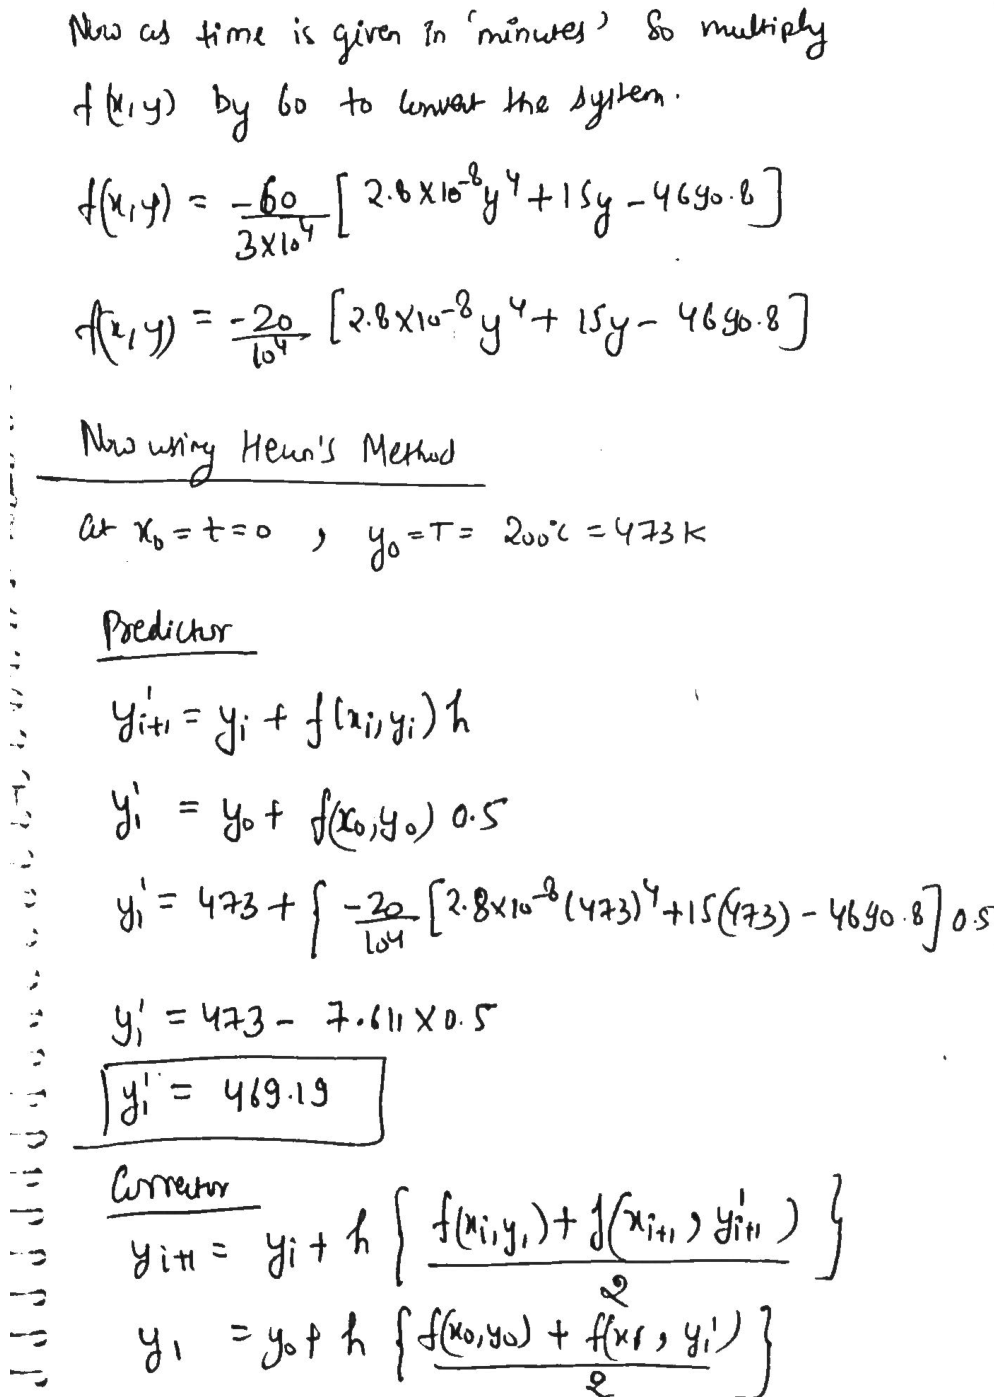 Now as time is given in 'minutes' So multiply
f(x,y) by 60 to convert the system.
f(x,y) = -60/3×10⁴ [2.8×10⁻⁸y⁴+15y-4690.8]
f(x,y) = -20/10⁴ [2.8×10⁻⁸y⁴+15y-4690.8]
Now using Heun's Method
at x₀=t=0 , y₀=T= 200°C =473K
Predictor
y'ᵢ₊₁ = yᵢ + f(xᵢ,yᵢ)h
y₁' = y₀+ f(x₀,y₀) 0.5
y₁' = 473+{-20/10⁴ [2.8×10⁻⁸(473)⁴+15(473)-4690.8] 0.5
y₁' = 473- 7.611×0.5
y₁' = 469.19
Corrector
yᵢ₊₁ = yᵢ+h { f(xᵢ,yᵢ)+f(xᵢ₊₁, y'ᵢ₊₁)/2 }
y₁ = y₀+h { f(x₀,y₀) + f(x₁, y₁')/2 }